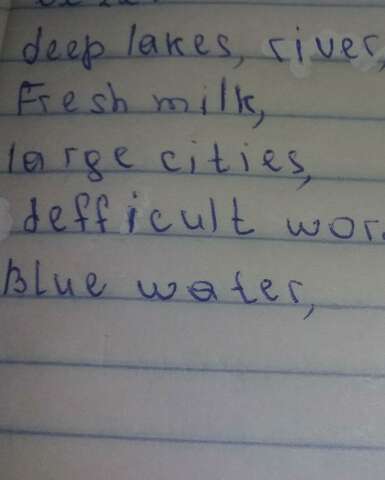 deep lakes, river,
Fresh milk,
large cities,
defficult wor
Blue water,